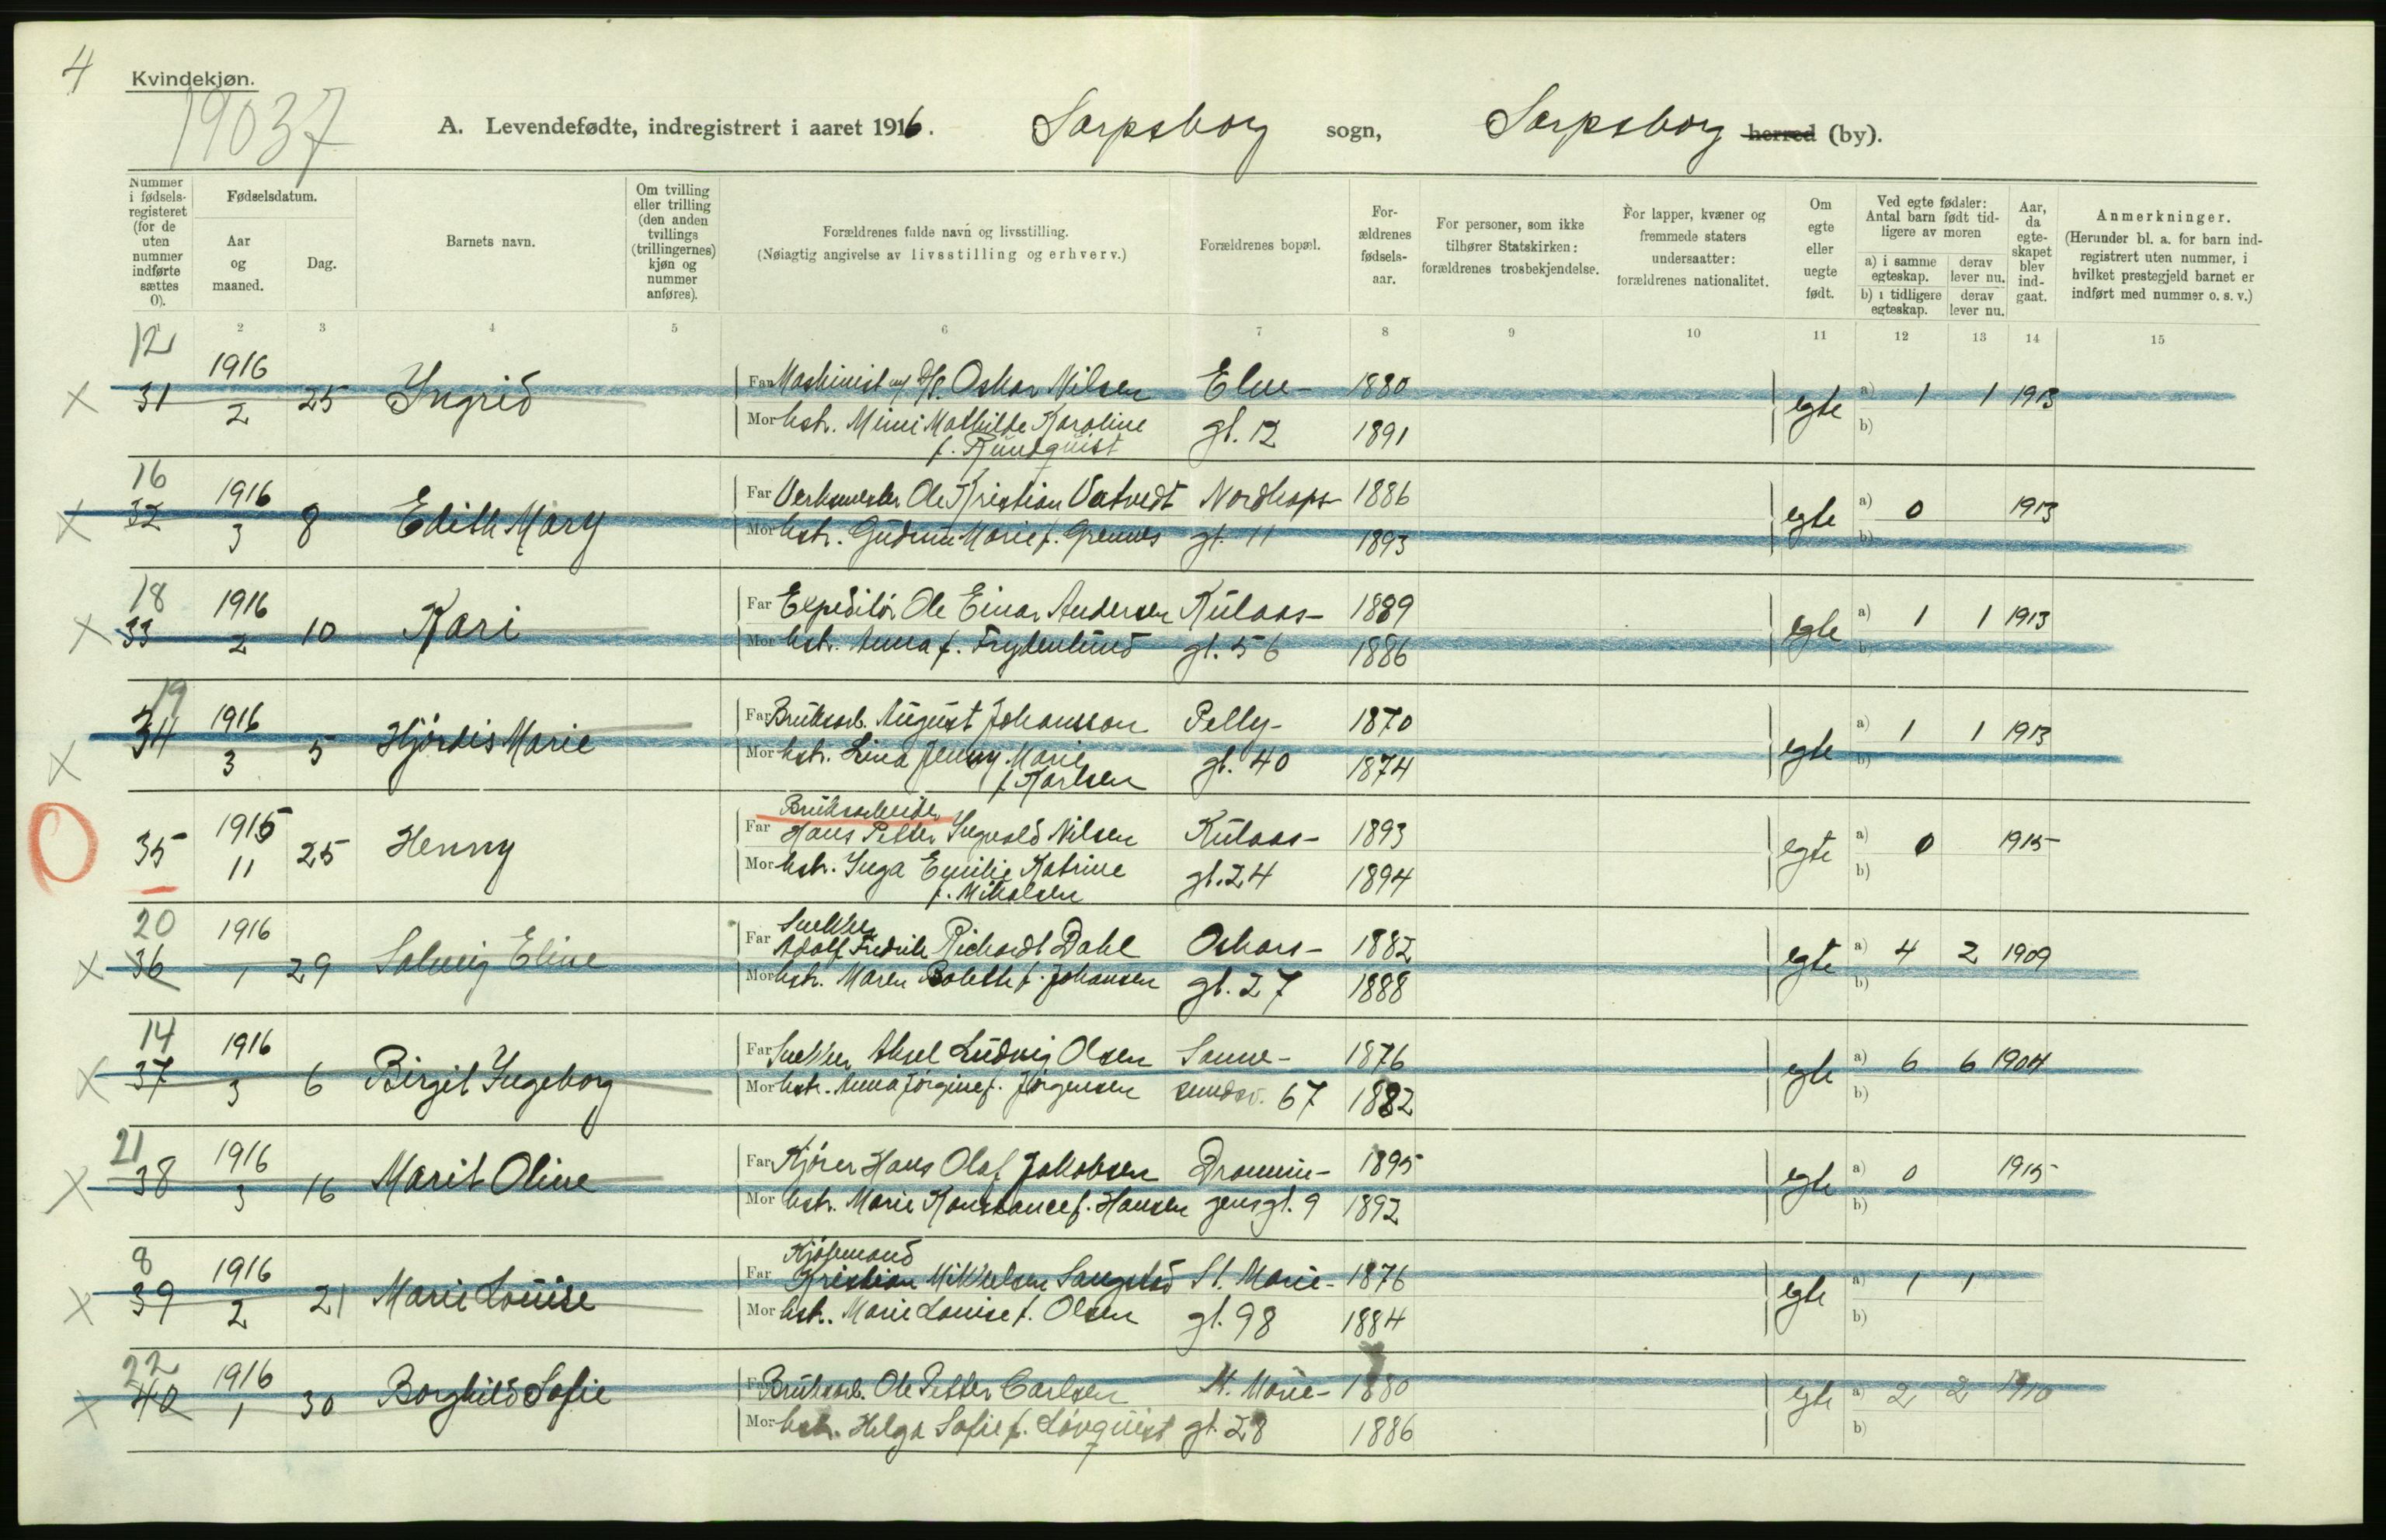 4
Kvindekjøn.
19037
A. Levendefødte, indregistrert i aaret 1916. Sarpsborg sogn, Sarpsborg herred (by).
Nummer i fødselsregisteret (for de uten nummer indførte sættes 0).
Fødselsdatum.
Aar og maaned.
Dag.
Barnets navn.
Om tvilling eller trilling (den anden tvillings (trillingernes) kjøn og nummer anføres).
Forældrenes fulde navn og livsstilling.
(Nøiagtig angivelse av livsstilling og erhverv.)
Forældrenes bopæl.
Forældrenes fødselsaar.
For personer, som ikke tilhører Statskirken: forældrenes trosbekjendelse.
For lapper, kvæner og fremmede staters undersaatter: forældrenes nationalitet.
Om egte eller uegte født.
Ved egte fødsler: Antal barn født tidligere av moren
a) i samme egteskap. derav lever nu.
b) i tidligere egteskap. derav lever nu.
Aar, da egteskapet blev indgaat.
Anmerkninger.
(Herunder bl. a. for barn indregistrert uten nummer, i hvilket prestegjeld barnet er indført med nummer o. s. v.)
1 2 3 4 5 6 7 8 9 10 11 12 13 14 15
12
31 1916 2 25 Ingrid Far Maskinist Oskar Nilsen Elve- 1880 egte a) 1 1 1913
Mor hstr. Mimi Mathilde Karoline gt. 12 1891 b)
f. Rundquist
16
32 1916 3 8 Edith Mary Far Verksmester Ole Kristian Vatvedt Nordkaps- 1886 egte a) 0 1913
Mor hstr. Gudrun Marie f. Grennes gt. 11 1893 b)
18
33 1916 2 10 Kari Far Expeditør Ole Einar Andersen Kulaas- 1889 egte a) 1 1 1913
Mor hstr. Anna f. Frydenlund gt. 56 1886 b)
19
34 1916 3 5 Hjördis Marie Far Bruksarb. August Johansson Pelly- 1870 egte a) 1 1 1913
Mor hstr. Lina Jenny Marie gt. 40 1874 b)
f. Karlsen
Bruksarbeider
35 1915 11 25 Henny Far Hans Petter Ingvald Nilsen Kulaas- 1893 egte a) 0 1915
Mor hstr. Inga Emilie Katrine gt. 24 1894 b)
f. Mikalsen
20 Snekker
36 1916 1 29 Solveig Eline Far Adolf Fredrik Richardt Dahl Oskars- 1882 egte a) 4 2 1909
Mor hstr. Maren Bolette f. Johansen gt. 27 1888 b)
14
37 1916 3 6 Birgit Ingeborg Far Snekker Aksel Ludvig Olsen Sanne- 1876 egte a) 6 6 1904
Mor hstr. Anna Jörgine f. Jörgensen sundsv. 67 1882 b)
21
38 1916 3 16 Marit Oline Far Kjörer Hans Olaf Jakobsen Dronnin- 1895 egte a) 0 1915
Mor hstr. Marie Konstance f. Hansen gens gt. 9 1892 b)
8 Kjöbmand
39 1916 2 21 Marie Louise Far Kristian Mikkelsen Saugstad St. Marie- 1876 egte a) 1 1
Mor hstr. Marie Louise f. Olsen gt. 98 1884 b)
22
40 1916 1 30 Borghild Sofie Far Bruksarb. Ole Petter Carlsen St. Marie- 1880 egte a) 2 2 1910
Mor hstr. Helga Sofie f. Lövquist gt. 28 1886 b)